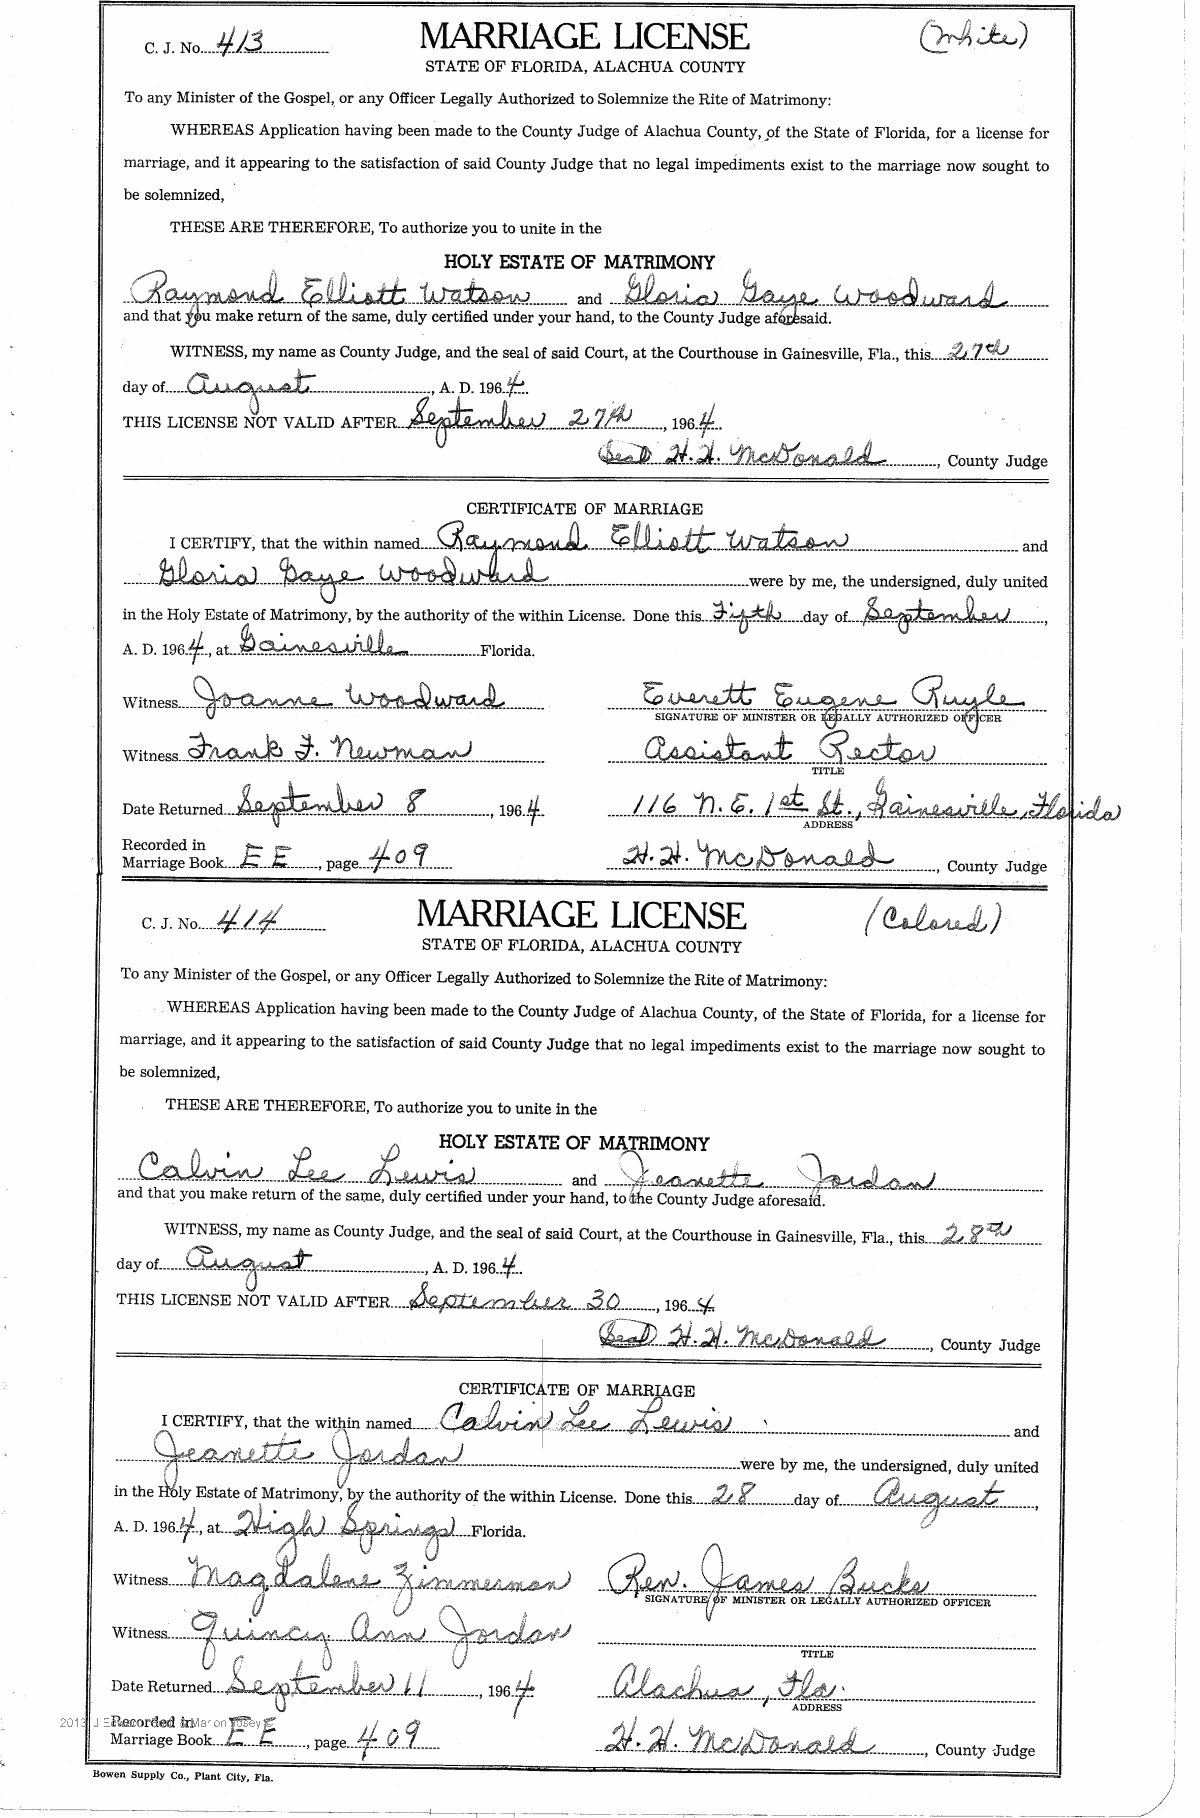 C. J. No. 413 MARRIAGE LICENSE (White)
STATE OF FLORIDA, ALACHUA COUNTY
To any Minister of the Gospel, or any Officer Legally Authorized to Solemnize the Rite of Matrimony:
WHEREAS Application having been made to the County Judge of Alachua County, of the State of Florida, for a license for
marriage, and it appearing to the satisfaction of said County Judge that no legal impediments exist to the marriage now sought to
be solemnized,
THESE ARE THEREFORE, To authorize you to unite in the
HOLY ESTATE OF MATRIMONY
Raymond Elliott Watson and Gloria Gaye Woodward
and that you make return of the same, duly certified under your hand, to the County Judge aforesaid.
WITNESS, my name as County Judge, and the seal of said Court, at the Courthouse in Gainesville, Fla., this 27th
day of August, A. D. 1964
THIS LICENSE NOT VALID AFTER September 27th, 1964
Seal H. H. McDonald, County Judge
CERTIFICATE OF MARRIAGE
I CERTIFY, that the within named Raymond Elliott Watson and
Gloria Gaye Woodward were by me, the undersigned, duly united
in the Holy Estate of Matrimony, by the authority of the within License. Done this Fifth day of September,
A. D. 1964, at Gainesville Florida.
Witness Joanne Woodward Everett Eugene Ruyle
SIGNATURE OF MINISTER OR LEGALLY AUTHORIZED OFFICER
Witness Frank F. Newman Assistant Rector
TITLE
Date Returned September 8, 1964 116 N. E. 1st St., Gainesville, Florida
ADDRESS
Recorded in
Marriage Book EE, page 409 H. H. McDonald, County Judge
C. J. No. 414 MARRIAGE LICENSE (Colored)
STATE OF FLORIDA, ALACHUA COUNTY
To any Minister of the Gospel, or any Officer Legally Authorized to Solemnize the Rite of Matrimony:
WHEREAS Application having been made to the County Judge of Alachua County, of the State of Florida, for a license for
marriage, and it appearing to the satisfaction of said County Judge that no legal impediments exist to the marriage now sought to
be solemnized,
THESE ARE THEREFORE, To authorize you to unite in the
HOLY ESTATE OF MATRIMONY
Calvin Lee Lewis and Jeanette Jordan
and that you make return of the same, duly certified under your hand, to the County Judge aforesaid.
WITNESS, my name as County Judge, and the seal of said Court, at the Courthouse in Gainesville, Fla., this 28th
day of August, A. D. 1964
THIS LICENSE NOT VALID AFTER September 30, 1964
Seal H. H. McDonald, County Judge
CERTIFICATE OF MARRIAGE
I CERTIFY, that the within named Calvin Lee Lewis and
Jeanette Jordan were by me, the undersigned, duly united
in the Holy Estate of Matrimony, by the authority of the within License. Done this 28 day of August,
A. D. 1964, at High Springs Florida.
Witness Magdalene Zimmerman Rev. James Bucks
SIGNATURE OF MINISTER OR LEGALLY AUTHORIZED OFFICER
Witness Quincy Ann Jordan
TITLE
Date Returned September 11, 1964 Alachua, Fla.
ADDRESS
2013 J
Recorded in
Marriage Book EE, page 409 H. H. McDonald, County Judge
Bowen Supply Co., Plant City, Fla.